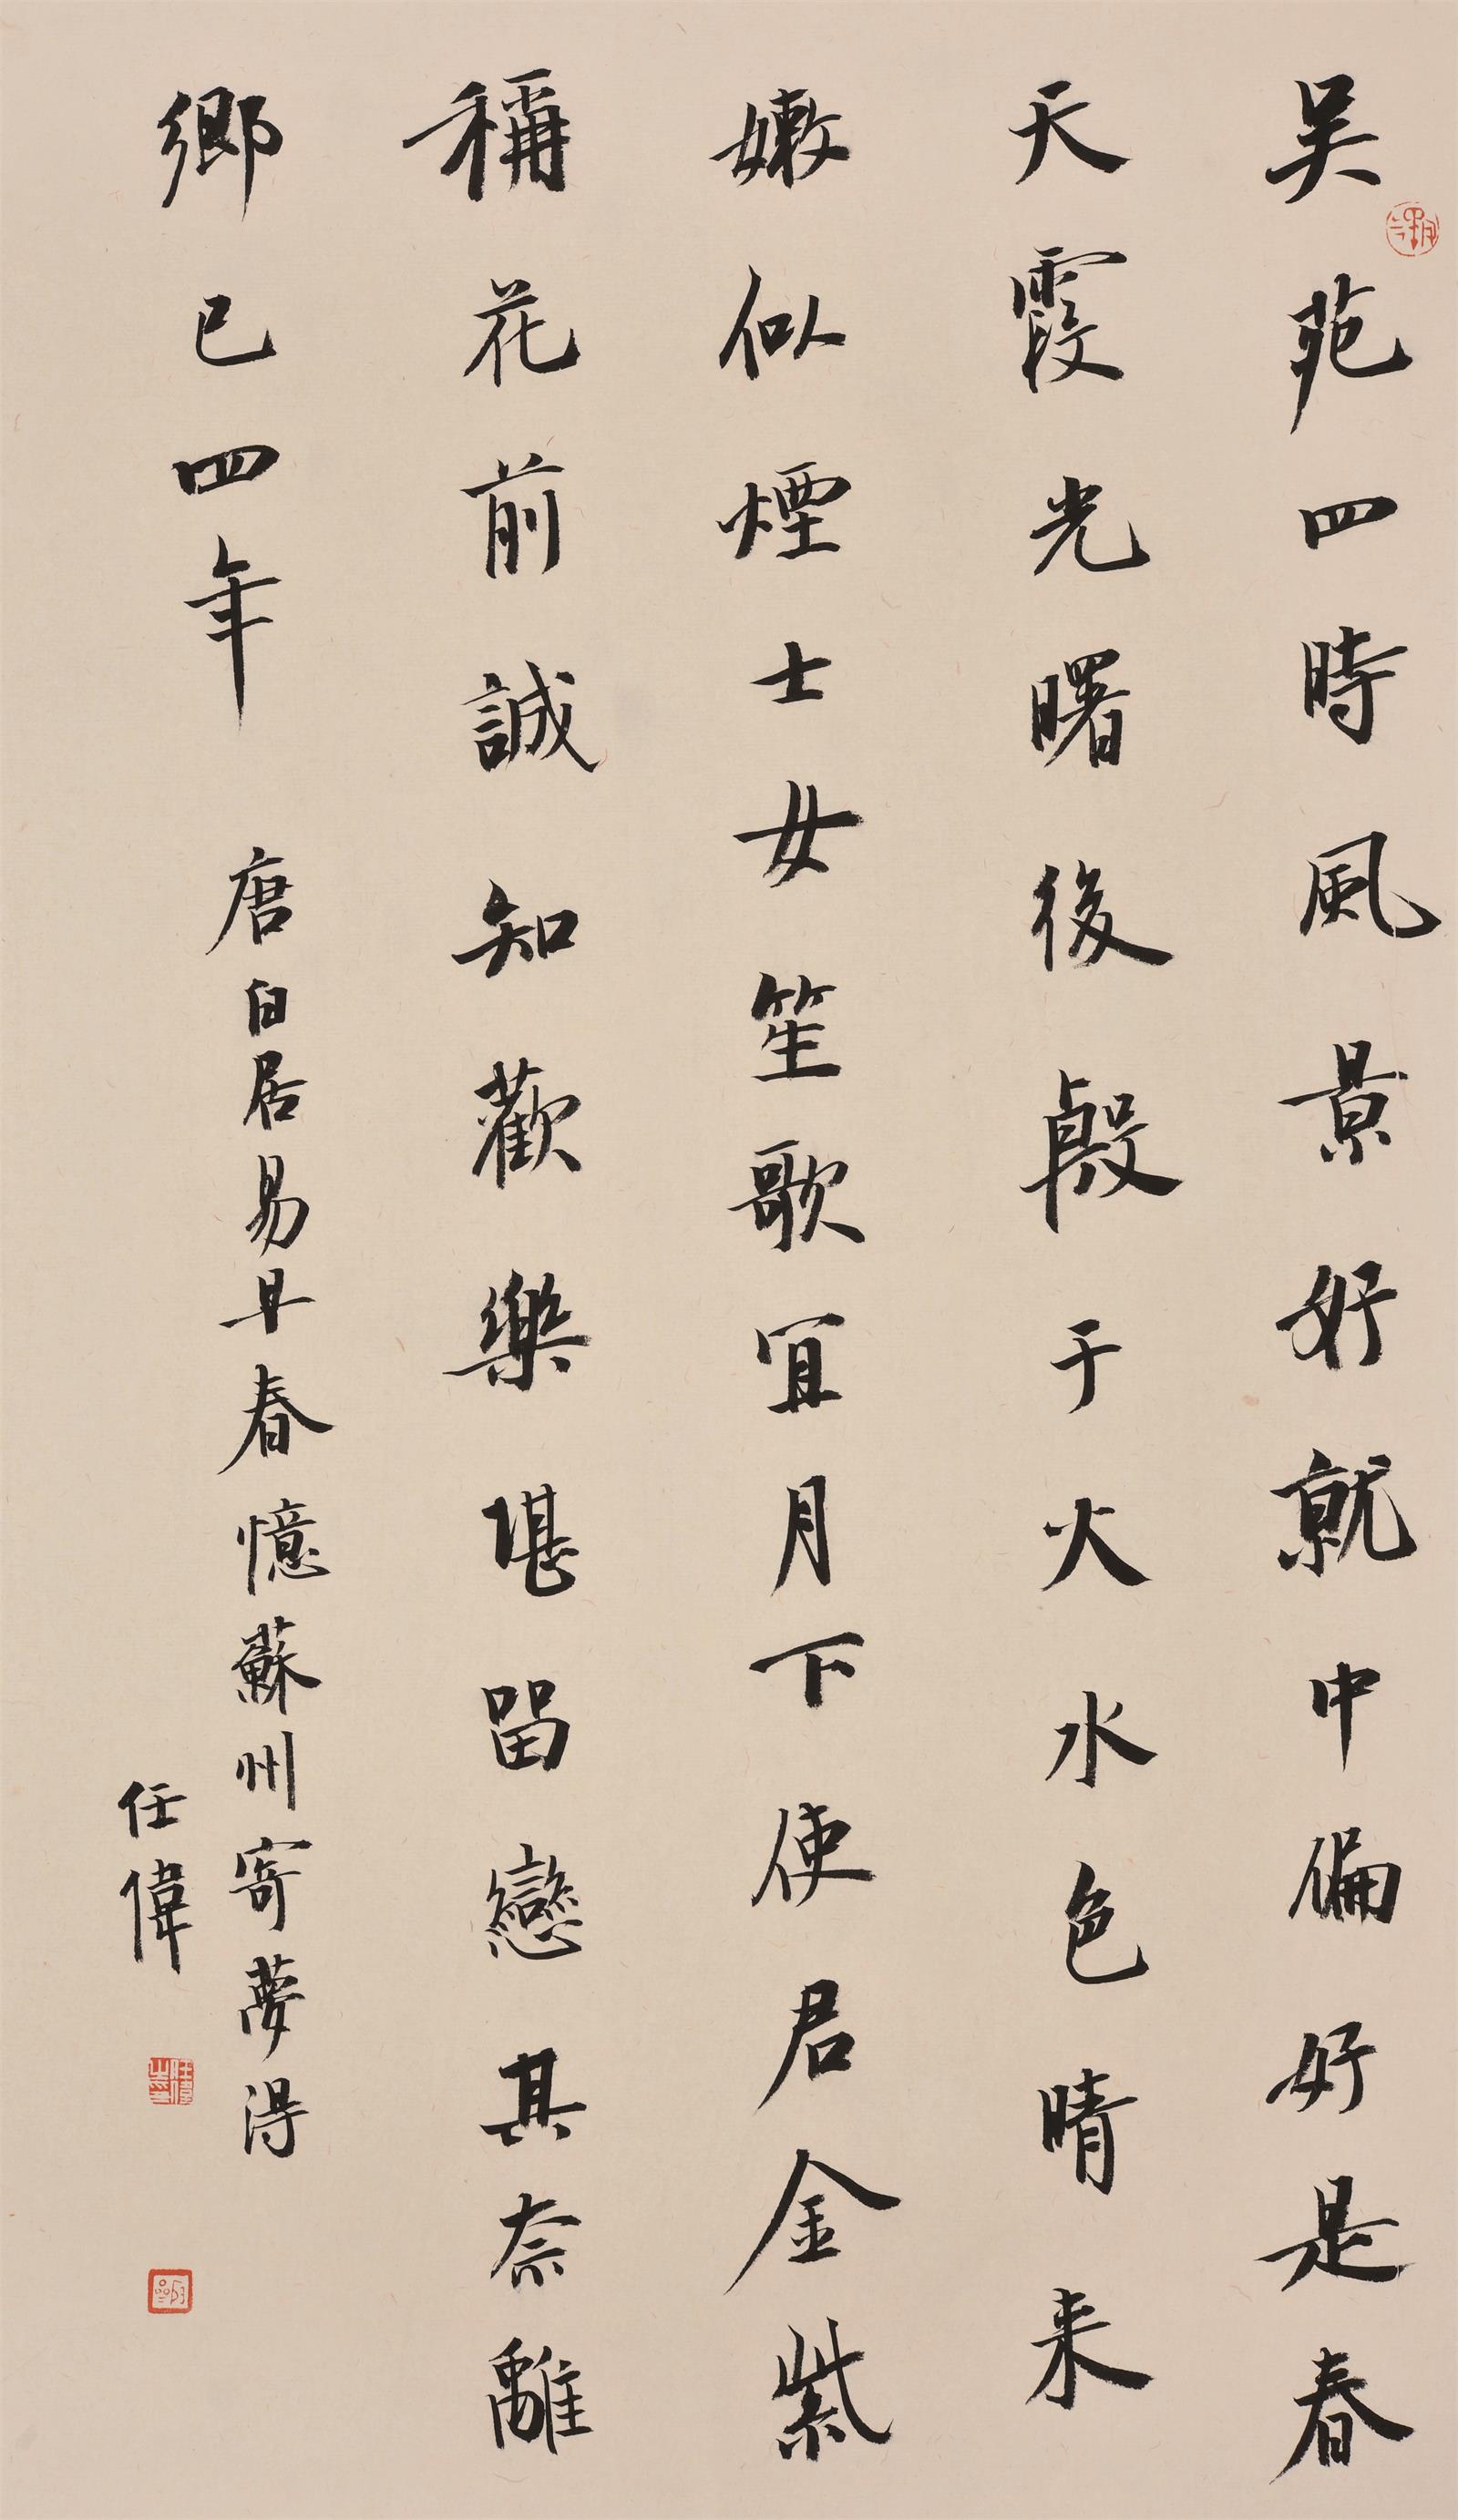 吴苑四時風景好就中偏好是春
天霞光曙後殷于火水色晴来
嫩似煙士女笙歌宜月下使君金紫
稱花前誠知歡樂堪留戀其奈離
鄉已四年 唐白居易早春憶蘇州寄夢得
任偉